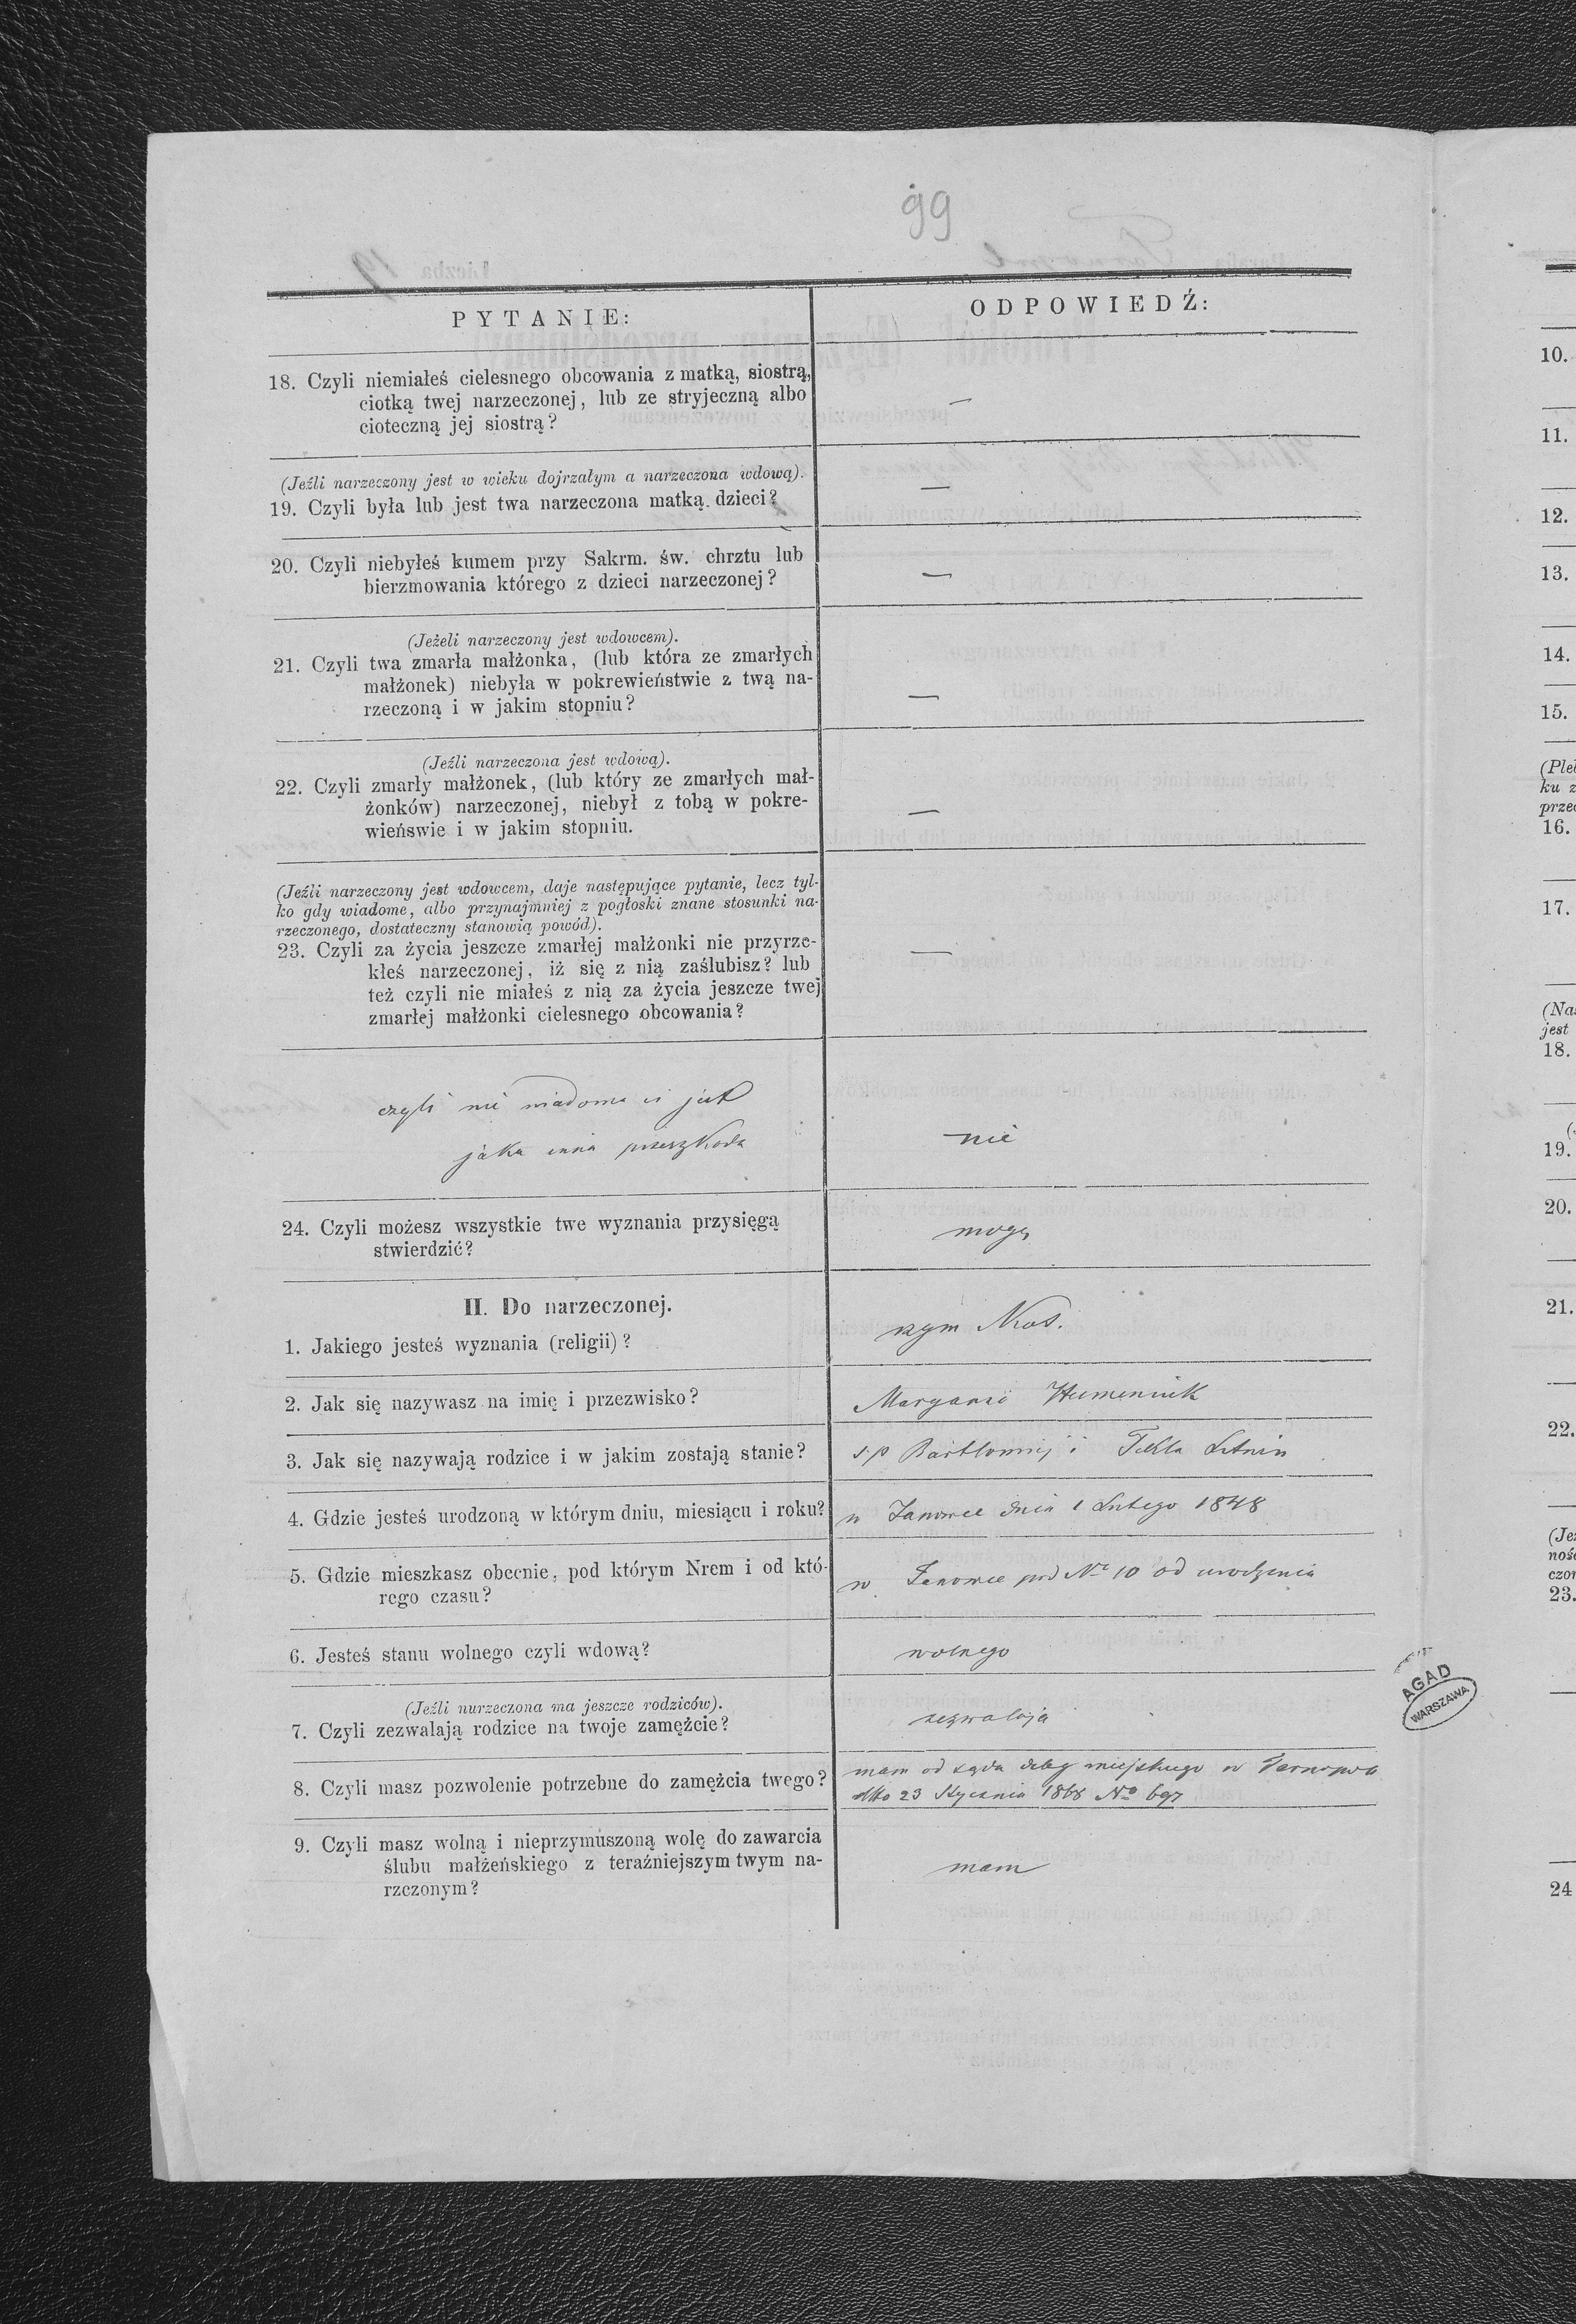 99
PYTANIE:
ODPOWIEDŹ:
18. Czyli niemiałeś cielesnego obcowania z matką, siostrą,
ciotką twej narzeczonej, lub ze stryjeczną albo
cioteczną jej siostrą?
—
(Jeźli narzeczony jest w wieku dojrzałym a narzeczona wdową).
19. Czyli była lub jest twa narzeczona matką dzieci?
—
20. Czyli niebyłeś kumem przy Sakrm. św. chrztu lub
bierzmowania którego z dzieci narzeczonej?
—
(Jeżeli narzeczony jest wdowcem).
21. Czyli twa zmarła małżonka, (lub która ze zmarłych
małżonek) niebyła w pokrewieństwie z twą na-
rzeczoną i w jakim stopniu?
—
(Jeźli narzeczona jest wdową).
22. Czyli zmarły małżonek, (lub który ze zmarłych mał-
żonków) narzeczonej, niebył z tobą w pokre-
wieńswie i w jakim stopniu.
—
(Jeźli narzeczony jest wdowcem, daje następujące pytanie, lecz tyl-
ko gdy wiadome, albo przynajmniej z pogłoski znane stosunki na-
rzeczonego, dostateczny stanowią powód).
23. Czyli za życia jeszcze zmarłej małżonki nie przyrze-
kłeś narzeczonej, iż się z nią zaślubisz? lub
też czyli nie miałeś z nią za życia jeszcze twej
zmarłej małżonki cielesnego obcowania?
—
czyli nie wiadoma ci jest
jaka inna przeszkoda
nie
24. Czyli możesz wszystkie twe wyznania przysięgą
stwierdzić?
mogę
II. Do narzeczonej.
1. Jakiego jesteś wyznania (religii)?
rzym
2. Jak się nazywasz na imię i przezwisko?
Maryanna Humeniuk
3. Jak się nazywają rodzice i w jakim zostają stanie?
s.p Bartłomiej i Tekla
4. Gdzie jesteś urodzoną w którym dniu, miesiącu i roku?
w Janowce dnia 1 Lutego 1848
5. Gdzie mieszkasz obecnie, pod którym Nrem i od któ-
rego czasu?
w Janowce pod Nº 10 od urodzenia
6. Jesteś stanu wolnego czyli wdową?
wolnego
(Jeźli nurzeczona ma jeszcze rodziców).
7. Czyli zezwalają rodzice na twoje zamężcie?
zezwalają
8. Czyli masz pozwolenie potrzebne do zamężcia twego?
mam od sądu deleg miejskiego w Tarnopolu
ddto 23 Stycznia 1868 Nº 697
9. Czyli masz wolną i nieprzymuszoną wolę do zawarcia
ślubu małżeńskiego z teraźniejszym twym na-
rzczonym?
mam
AGAD
WARSZAWA
10.
11.
12.
13.
14.
15.
16.
17.
18.
19.
20.
21.
22.
23.
24